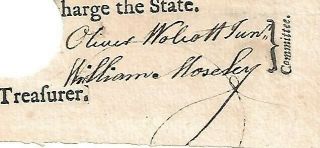 harge the State.
Oliver Wolcott Junr.
William Moseley
} Committee.
Treaſurer.